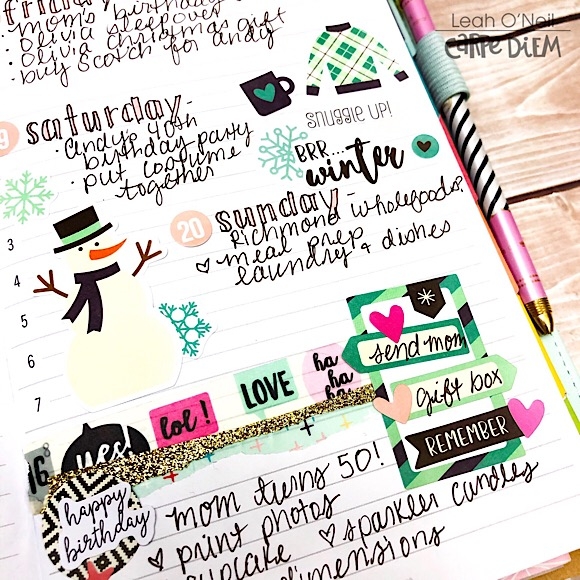 Leah O'Neil
CARPE DIEM
· mom's birthday
· Olivia sleepover
· Olivia Christmas gift
· buy scotch for andy
19 saturday-
· andy's 40th
birthday party
· put costume
together
SNUGGLE UP!
BRR...
winter
20 sunday-
Richmond wholefoods?
meal prep
laundry & dishes
3
4
5
6
7
8
send mom
gift box
REMEMBER
ha
ha
ha
LOVE
lol!
yes!
16
happy
birthday
mom turns 50!
print photos
cupcake
sparkler candles
dimensions